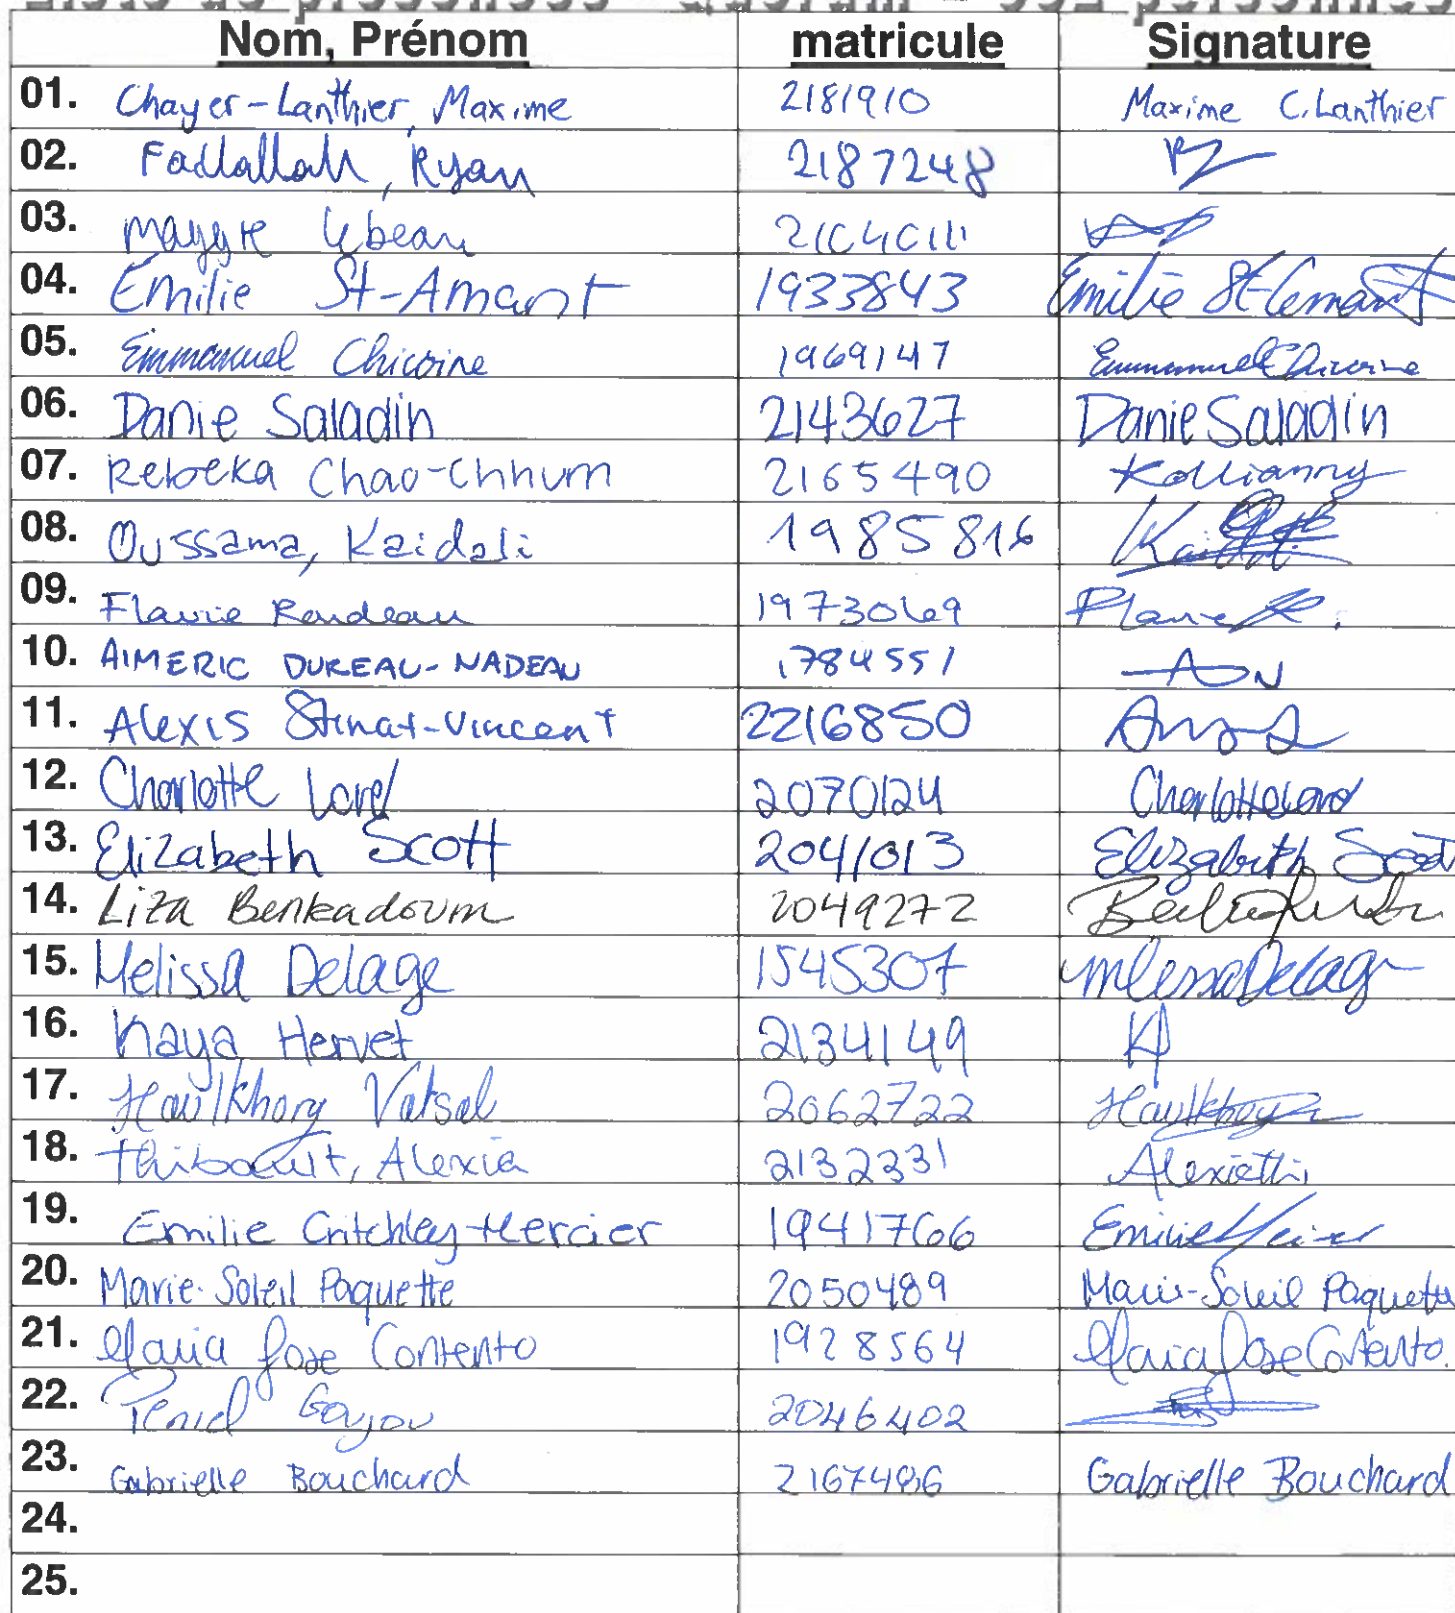 Liste de présences - quorum - 352 personnes
Nom, Prénom matricule Signature
01. Chayer-Lanthier, Maxime 2181910 Maxime C.Lanthier
02. Fadlallah, Ryan 2187248
03. Maggie Lebeau
04. Emilie St-Amant 1933843 Emilie St-Amant
05. Emmanuel Chicoine 1969147 Emmanuel Chicoine
06. Danie Saladin 2143627 Danie Saladin
07. Rebeka Chao-Chhum 2165490
08. Oussama, Kaidali 1985816
09. Flavie Rondeau 1973069 Flavie R.
10. AIMERIC DUREAU-NADEAU 1784551 ADN
11. Alexis Stinat-Vincent 2216850
12. Charlotte Lord 2070124 Charlotte Lord
13. Elizabeth Scott 2041013 Elizabeth Scott
14. Liza Benkadoum 2049272
15. Melissa Delage 1545307 Melissa Delage
16. Naya Hervet 2134149
17. Haulkhory Vatsal 2062722 Haulkhory
18. Thibault, Alexia 2132331 Alexia Thi
19. Emilie Critchley-Mercier 1941766 Emilie
20. Marie-Soleil Paquette 2050489 Marie-Soleil Paquette
21. Maria Jose Contento 1928564 Maria Jose Contento.
22. 2046402
23. Gabrielle Bouchard 2167486 Gabrielle Bouchard
24.
25.